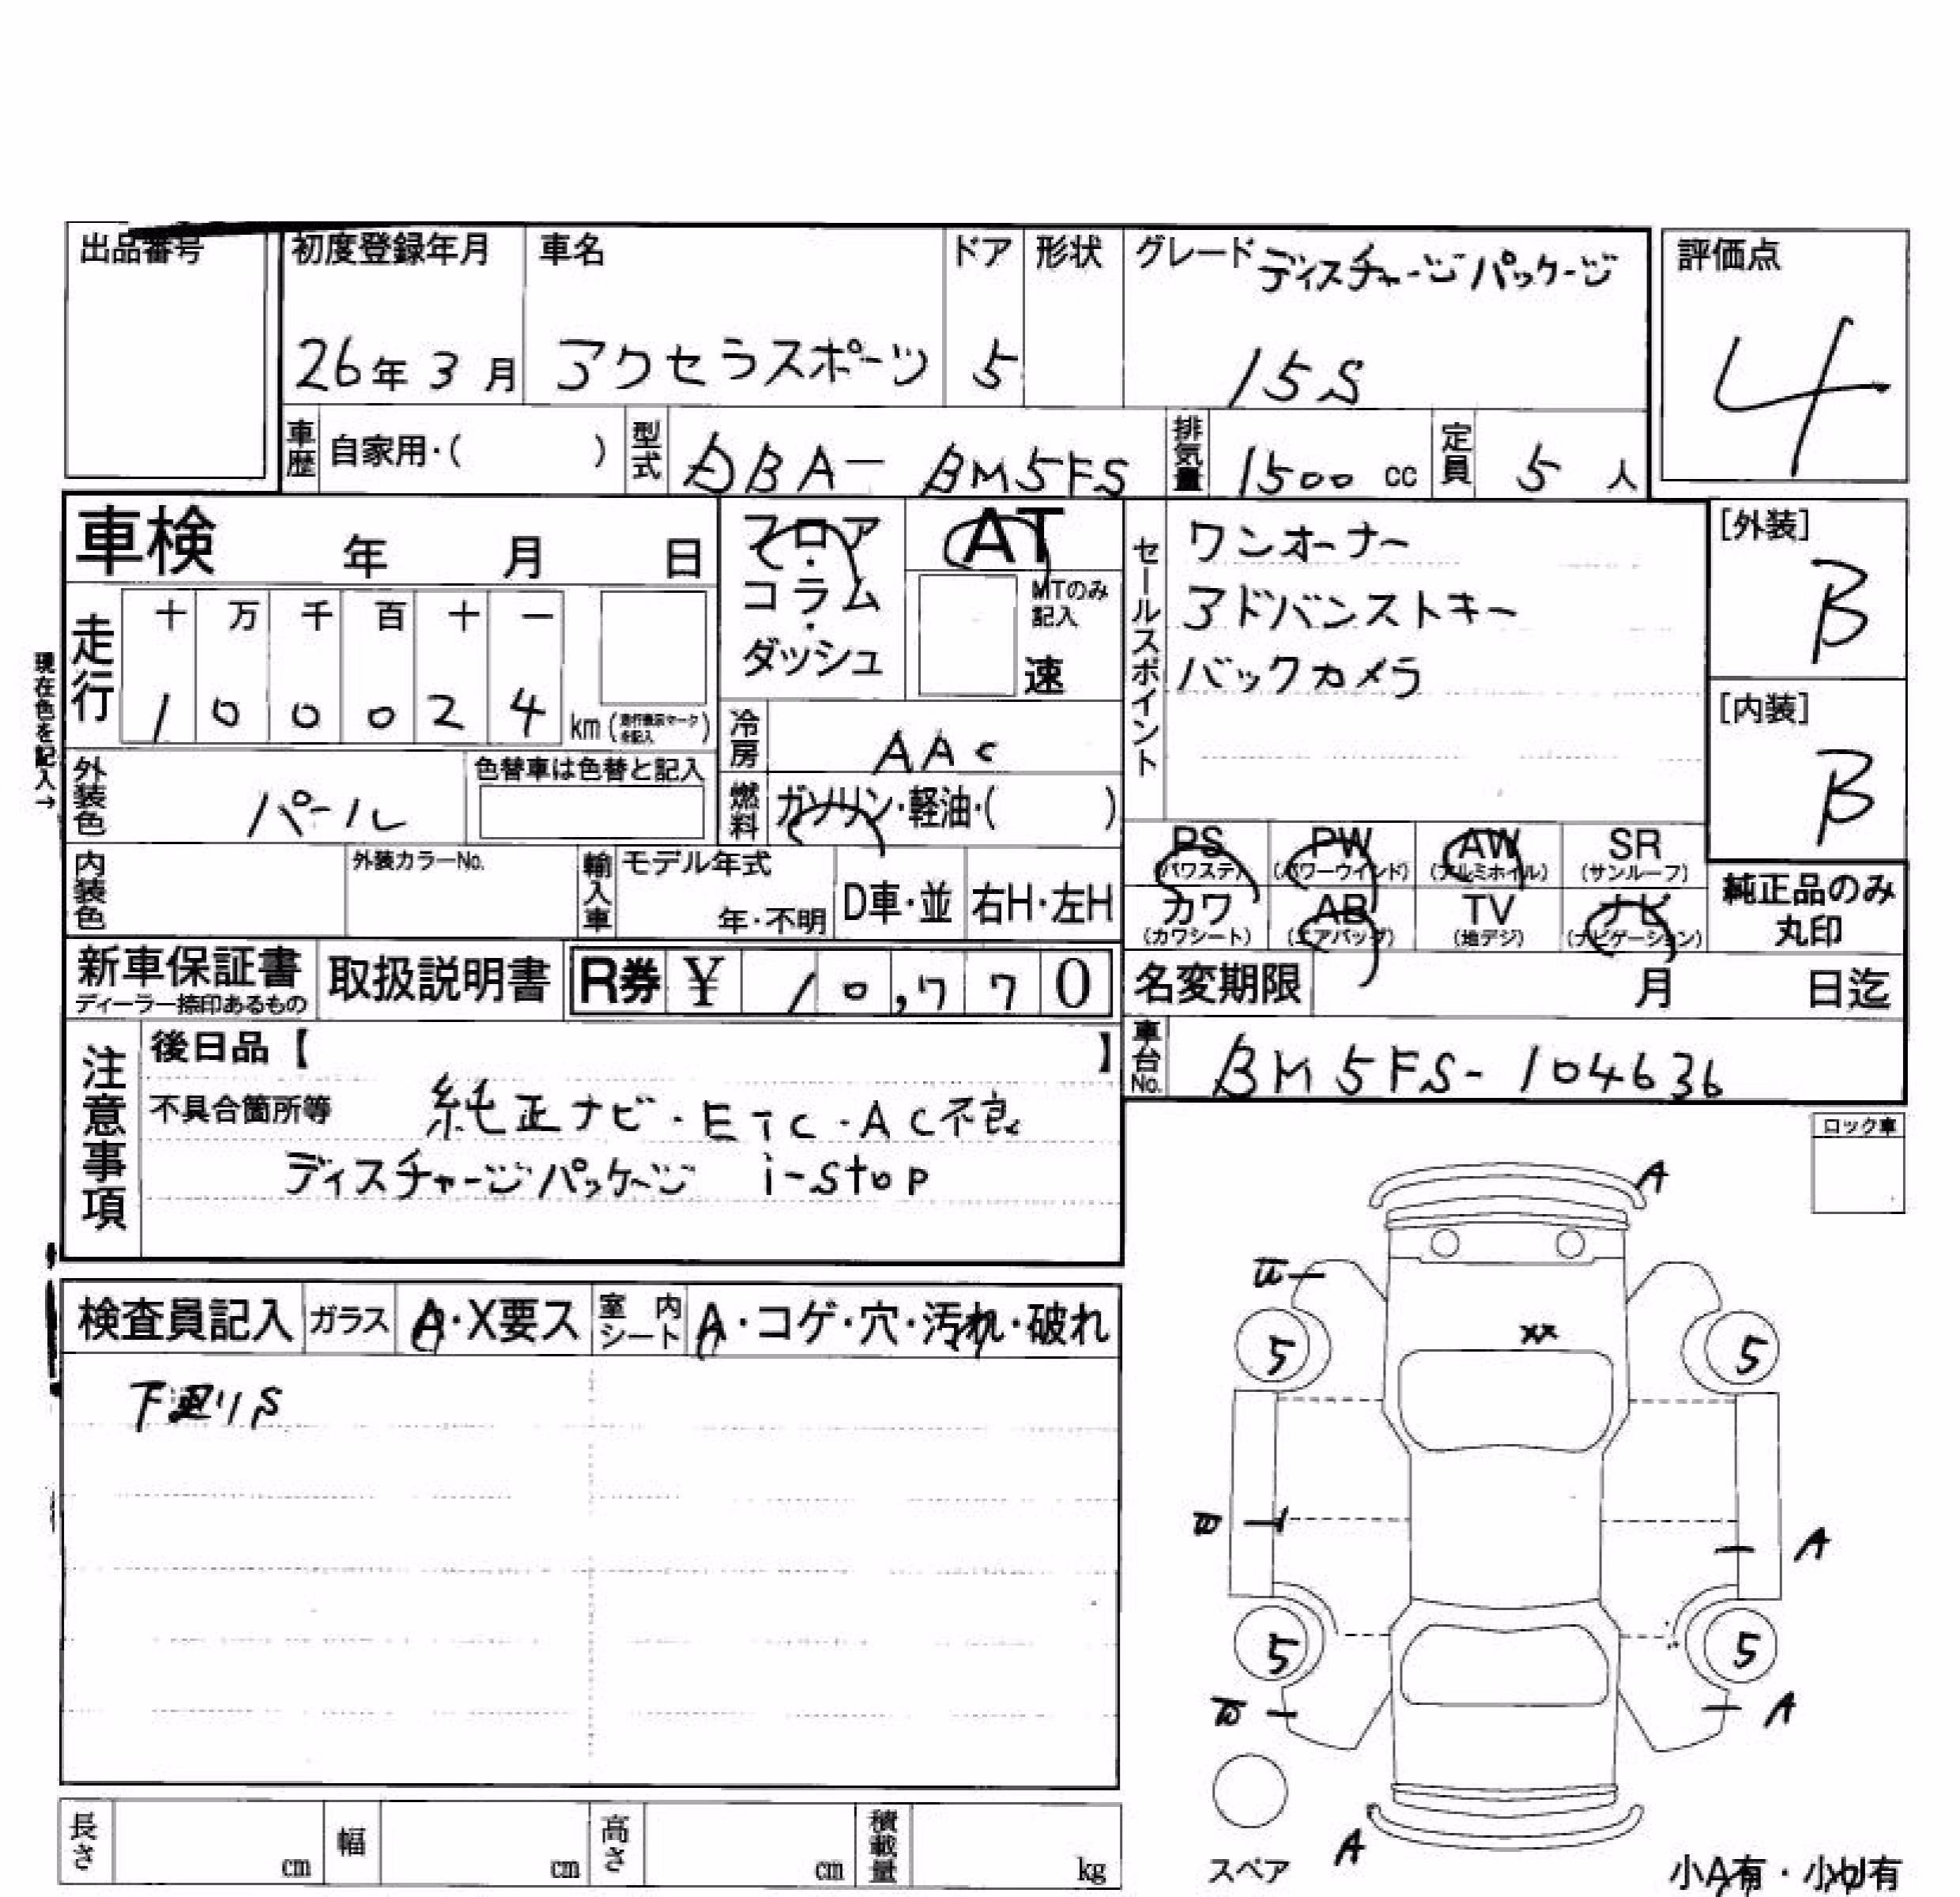 出品番号
初度登録年月 車名 ドア 形状 グレード ディスチャージパッケージ 評価点
26年 3月 アクセラスポーツ 5 15S 4
車歴 自家用・( ) 型式 DBA- BM5FS 排気量 1500 cc 定員 5 人
車検 年 月 日
フロア・コラム・ダッシュ
AT
MTのみ記入
速
セールスポイント
ワンオーナー
アドバンストキー
バックカメラ
[外装]
B
[内装]
B
現在色を記入→
走行 十 万 千 百 十 一
1 0 0 0 2 4 km (走行表示マークを記入)
冷房 AAC
燃料 ガソリン・軽油・( )
外装色 パール 色替車は色替と記入
内装色 外装カラーNo. 輸入車 モデル年式 年・不明 D車・並 右H・左H
PS (パワステ) PW (パワーウインド) AW (アルミホイル) SR (サンルーフ)
カワ (カワシート) AB (エアバッグ) TV (地デジ) ナビ (ナビゲーション)
純正品のみ丸印
新車保証書 ディーラー捺印あるもの 取扱説明書 R券 ¥ 10,770
名変期限 月 日迄
車台No. BM5FS-104636
注意事項
後日品【 】
不具合箇所等 純正ナビ・ETC・AC不良
ディスチャージパッケージ i-stop
ロック車
検査員記入 ガラス A・X要ス 室内シート A・コゲ・穴・汚れ・破れ
下廻りS
A
XX
5 5
A
5 5
A
A
スペア
小A有・小U有
長さ cm 幅 cm 高さ cm 積載量 kg